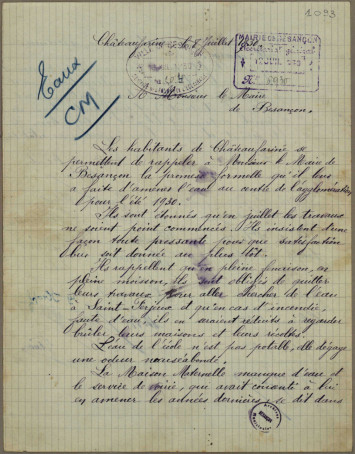 1093
Châteaufarine, le 8 Juillet 1930
MAIRIE DE BESANÇON
Secrétariat général
JUIL 1930
Eaux
CM
A Monsieur le Maire
de Besançon.
Les habitants de Châteaufarine se
permettent de rappeler à Monsieur le Maire de
Besançon la promesse formelle qu'il leur
a faite d'amener l'eau au centre de l'agglomération
pour l'été 1930.
Ils sont étonnés qu'en juillet les travaux
ne soient point commencés. Ils insistent d'une
façon toute pressante pour que satisfaction
leur soit donnée au plus tôt.
Ils rappellent qu'en pleine fenaison, en
pleine moisson, ils sont obligés de quitter
leurs travaux pour aller chercher de l'eau
à Saint-Ferjeux et qu'en cas d'incendie,
faute d'eau, ils en seraient réduits à regarder
brûler leurs maisons et leurs récoltes.
L'eau de l'école n'est pas potable, elle dégage
une odeur nauséabonde.
La Maison Maternelle manque d'eau et
le service de voirie, qui avait consenti à lui
en amener les années dernières, se dit dans